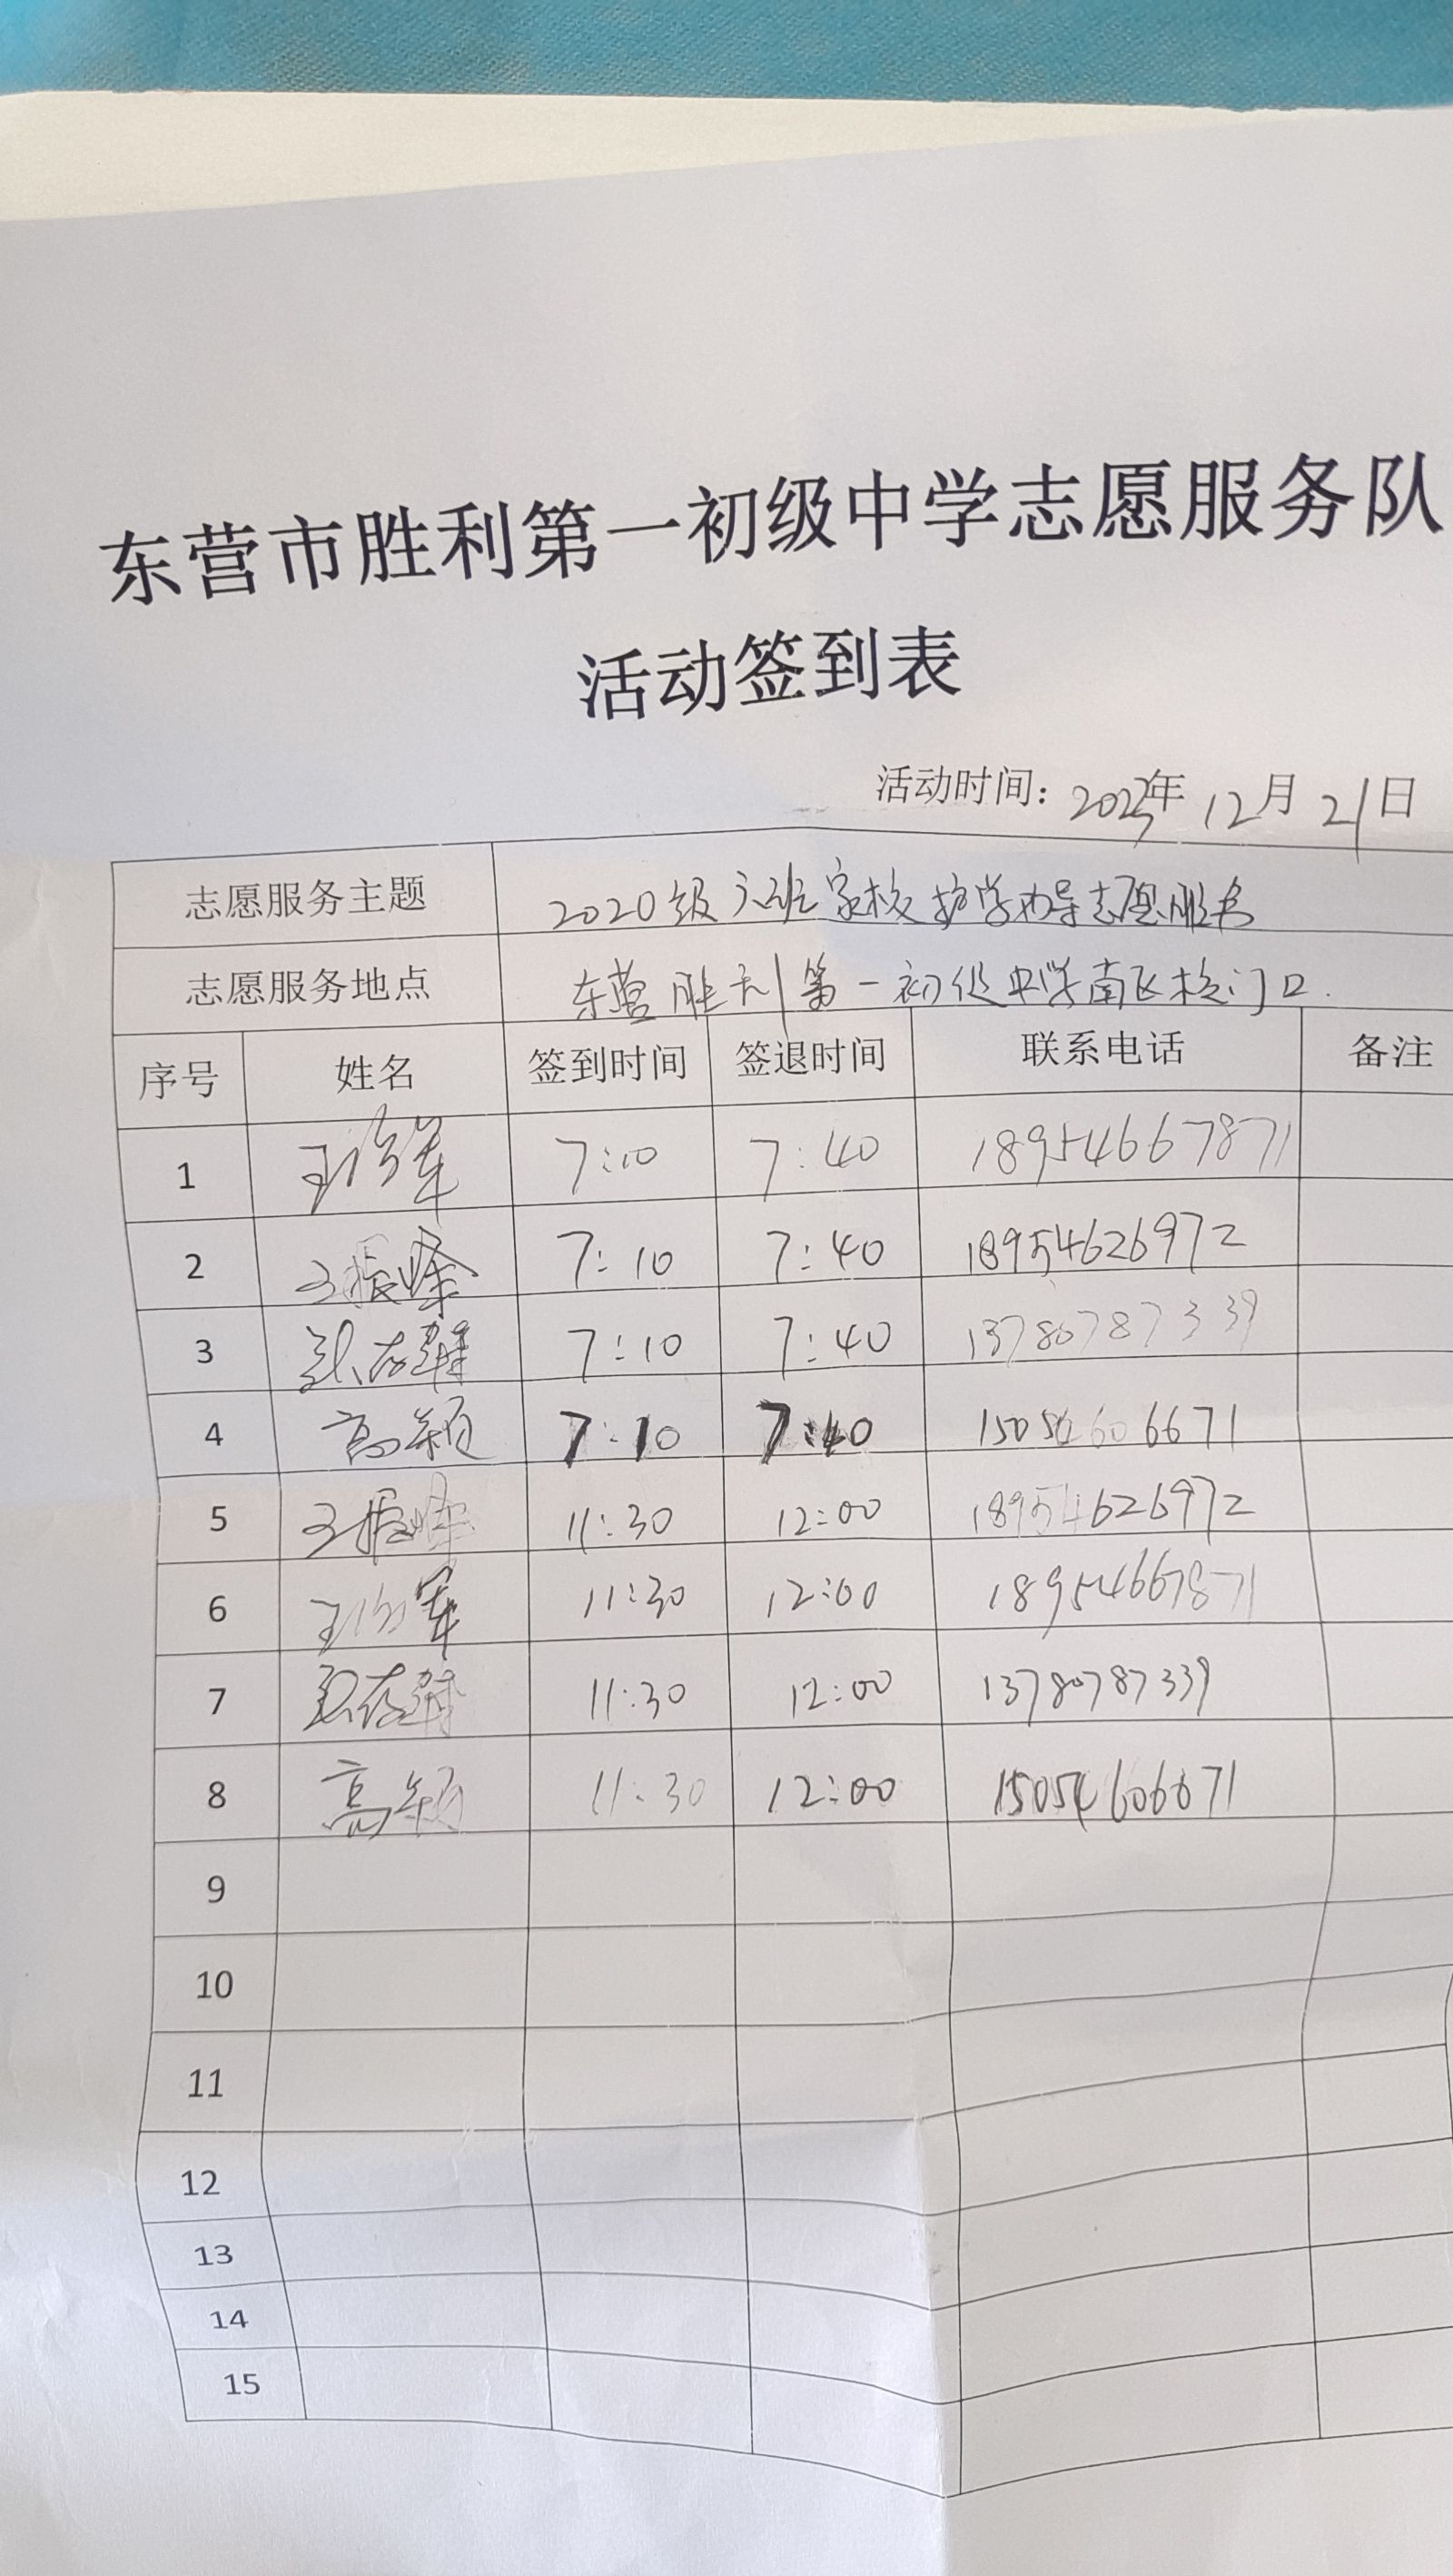 东营市胜利第一初级中学志愿服务队
活动签到表
活动时间：2023年12月21日
志愿服务主题 2020级六班家校护学劝导志愿服务
志愿服务地点 东营胜利第一初级中学南区校门口.
序号 姓名 签到时间 签退时间 联系电话 备注
1 7:10 7:40 18954667871
2 王振峰 7:10 7:40 18954626972
3 7:10 7:40 13780787339
4 高颖 7:10 7:40 15054606671
5 王振峰 11:30 12:00 18954626972
6 11:30 12:00 18954667871
7 11:30 12:00 13780787339
8 高颖 11:30 12:00 15054606671
9
10
11
12
13
14
15